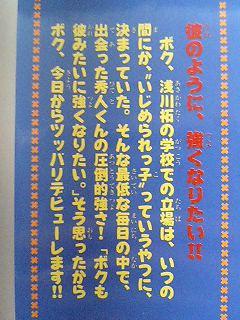 彼のように、強くなりたい!!
ボク、浅川拓の学校での立場は、いつの
間にか、"いじめられっ子"っていうやつに、
決まっていた。そんな最低な毎日の中で、
出会った秀人くんの圧倒的強さ！「ボクも
彼みたいに強くなりたい。」そう思ったから
ボク、今日からツッパリデビューします!!